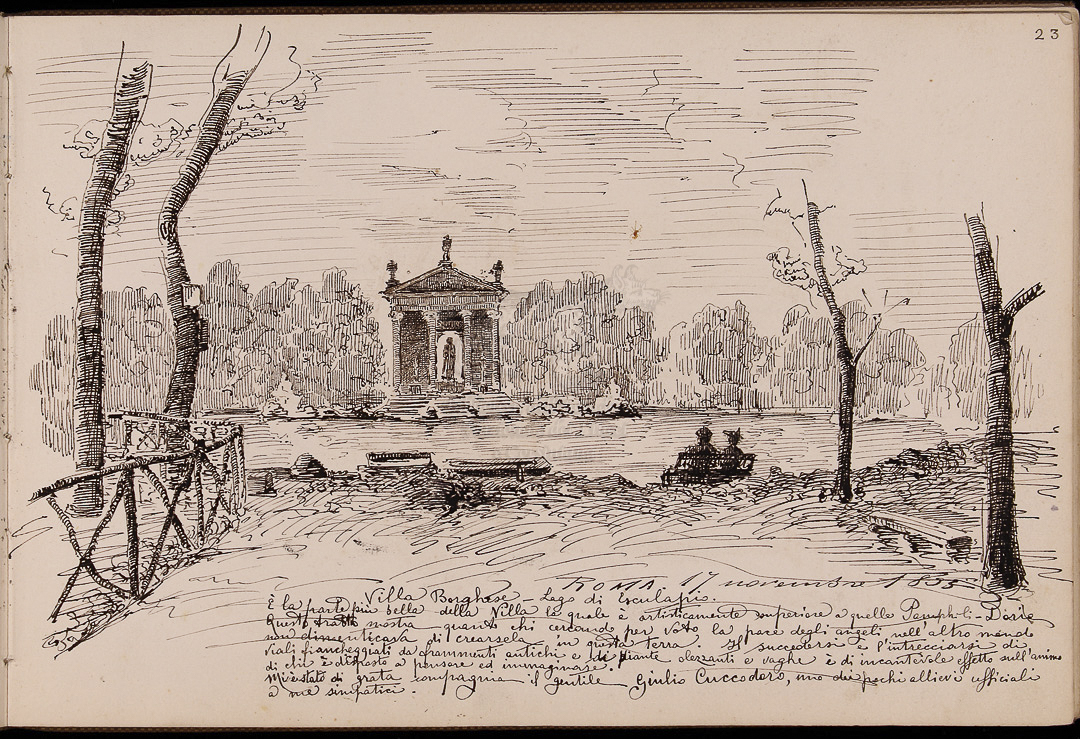 23
ROMA, 17 novembre 1855
Villa Borghese – Lago di Esculapio.
È la parte più bella della Villa la quale è artisticamente superiore a quelle Pamphili-Doria
Questo tratto mostra quanto chi cercando per voto la pace degli angeli nell'altro mondo
non dimenticava di crearsela in questa terra. Il succedersi e l'intrecciarsi di
viali fiancheggiati da frammenti antichi e di piante olezzanti e vaghe è di incantevole effetto sull'animo
di chi è disposto a pensare ed immaginare.
Mi è stato di grata compagnia il gentile Giulio Cuccodoro, uno dei pochi allievi ufficiali
a me simpatici.